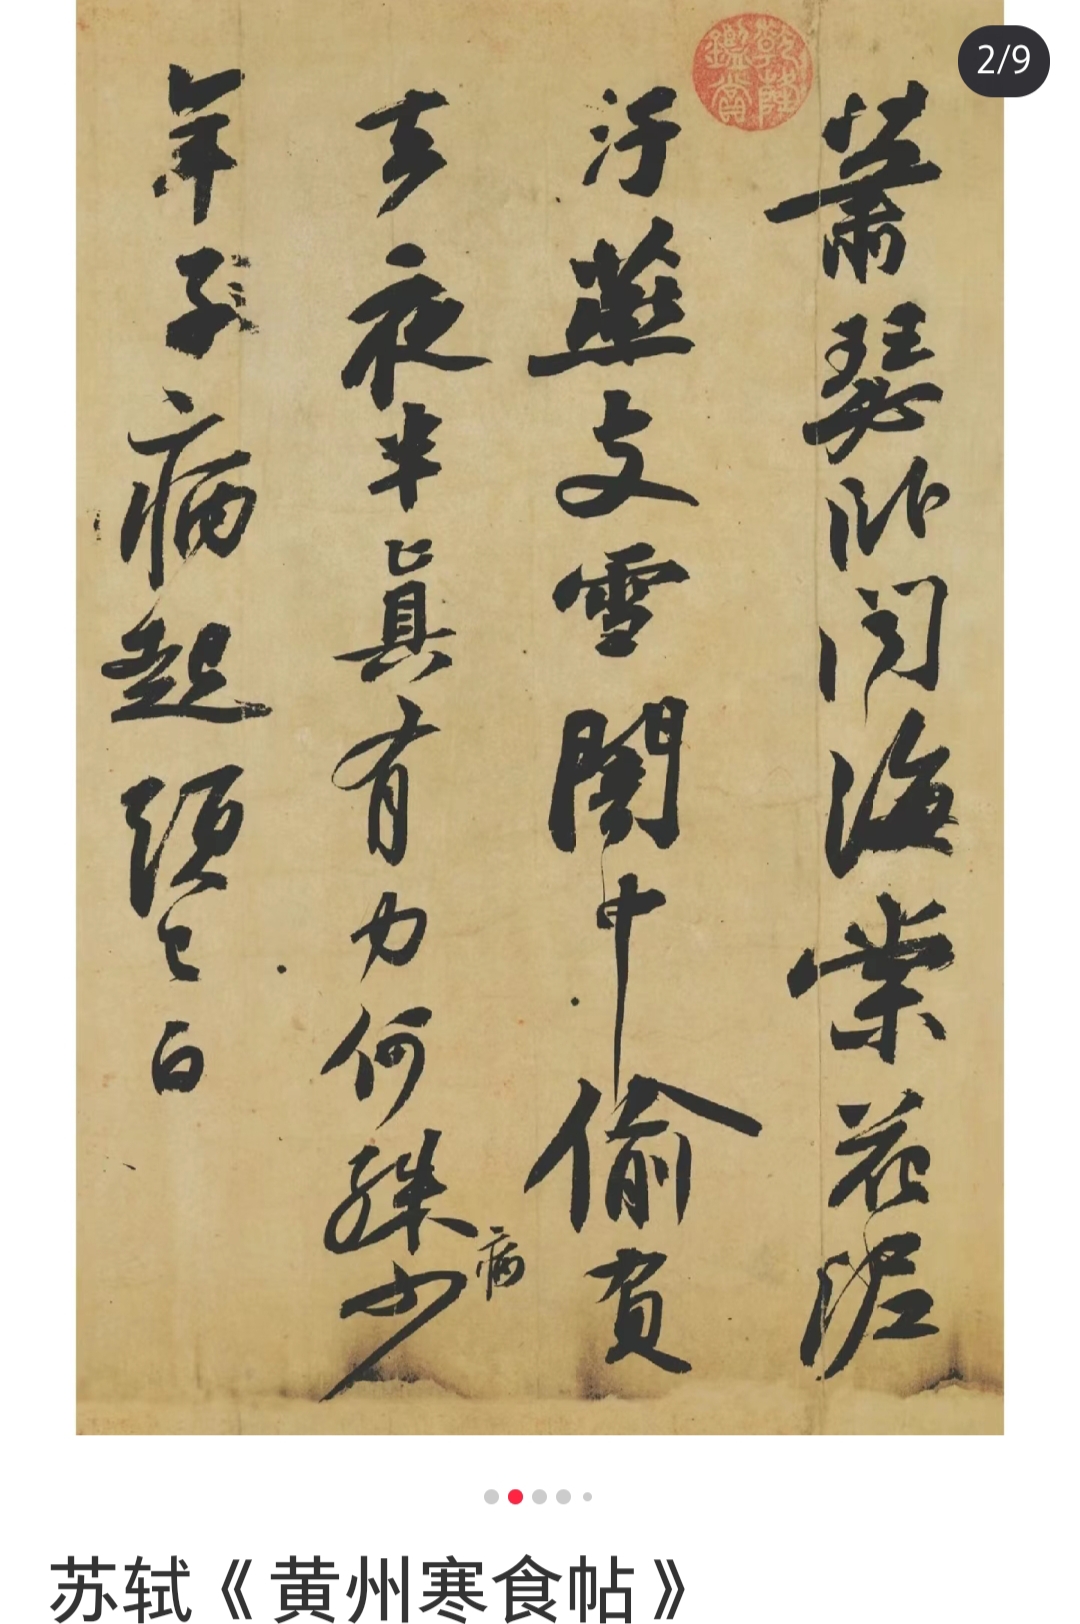 2/9
乾隆鑑賞
蕭瑟卧聞海棠花泥
汙燕支雪闇中偷負
去夜半真有力何殊少
病
年子病起頭已白
苏轼《黄州寒食帖》